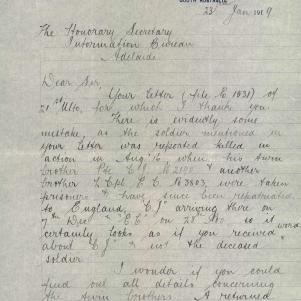 SOUTH AUSTRALIA
23 Jan 1919
The Honorary Secretary
Information Bureau
Adelaide
Dear Sir,
Your letter (file No 1831) of
21st Ulto, for which I thank you
There is evidently some
mistake, as the soldier mentioned in
your letter was reported killed in
action in Aug 16 when his twin
brother Pte C J No 2198 & another
brother L Cpl E C No 3803, were taken
prisoners & have since been repatriated
to England, C J arriving there on
7th Dec & E C on 28 Dec so it
certainly looks as if you received word
about C J & not the deceased
soldier
I wonder if you could
find out all details concerning
the twin brothers. A returned